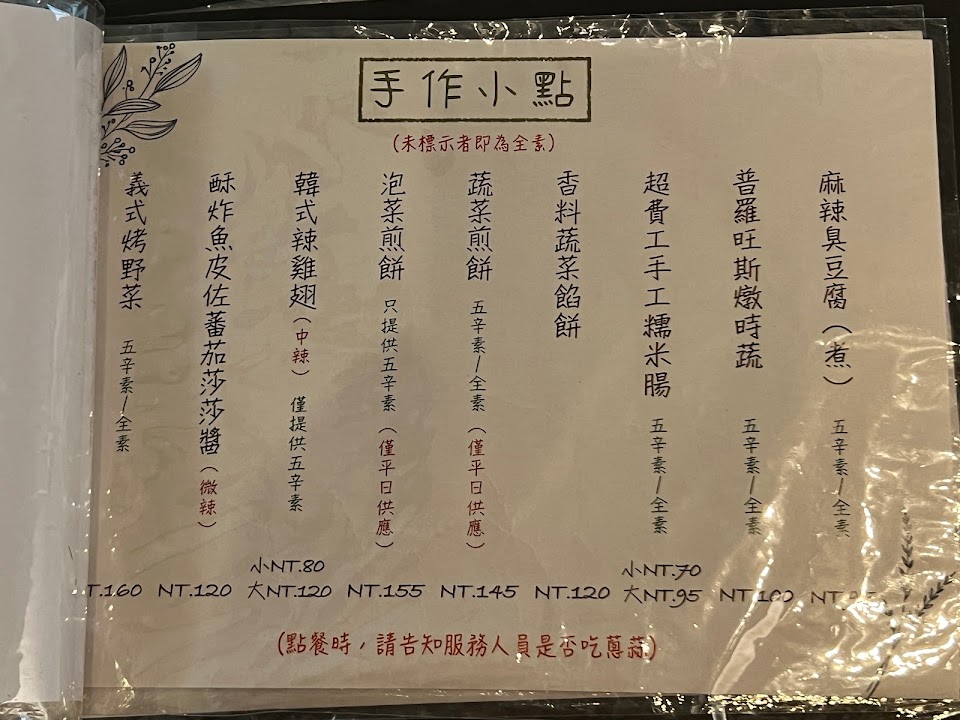 手作小點
(未標示者即為全素)
麻辣臭豆腐(煮) 五辛素/全素
普羅旺斯燉時蔬 五辛素/全素 NT.100
超費工手工糯米腸 五辛素/全素 小NT.70 大NT.95
香料蔬菜餡餅 NT.120
蔬菜煎餅 五辛素/全素(僅平日供應) NT.145
泡菜煎餅 只提供五辛素(僅平日供應) NT.155
韓式辣雞翅(中辣) 僅提供五辛素 小NT.80 大NT.120
酥炸魚皮佐蕃茄莎莎醬(微辣) NT.120
義式烤野菜 五辛素/全素 T.160
(點餐時,請告知服務人員是否吃蔥蒜)